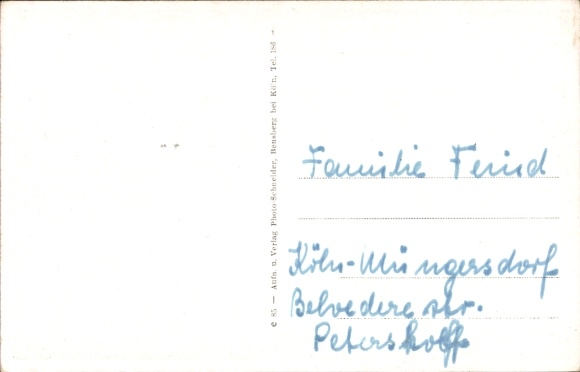 e 85 — Aufn. u. Verlag Photo-Schneider, Bensberg bei Köln, Tel. 186
Familie Feind
Köln-Müngersdorf
Belvedere str.
Petershof